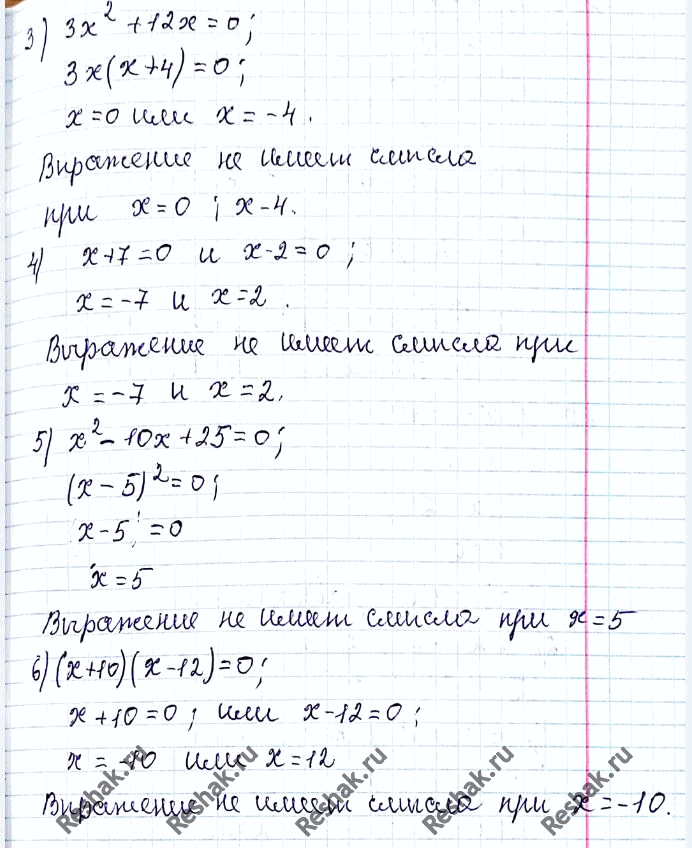 3) 3x² + 12x = 0;
3x(x+4) = 0;
x = 0 или x = -4.
Выражение не имеет смысла
при x = 0 ; x - 4.
4) x+7 = 0 и x-2 = 0 ;
x = -7 и x = 2 .
Выражение не имеет смысла при
x = -7 и x = 2.
5) x² - 10x + 25 = 0;
(x - 5)² = 0;
x - 5 = 0
x = 5
Выражение не имеет смысла при x = 5
6) (x+10)(x-12) = 0;
x + 10 = 0 ; или x - 12 = 0 ;
x = -10 или x = 12
Выражение не имеет смысла при x = -10.
Reshak.ru Reshak.ru Reshak.ru Reshak.ru Reshak.ru